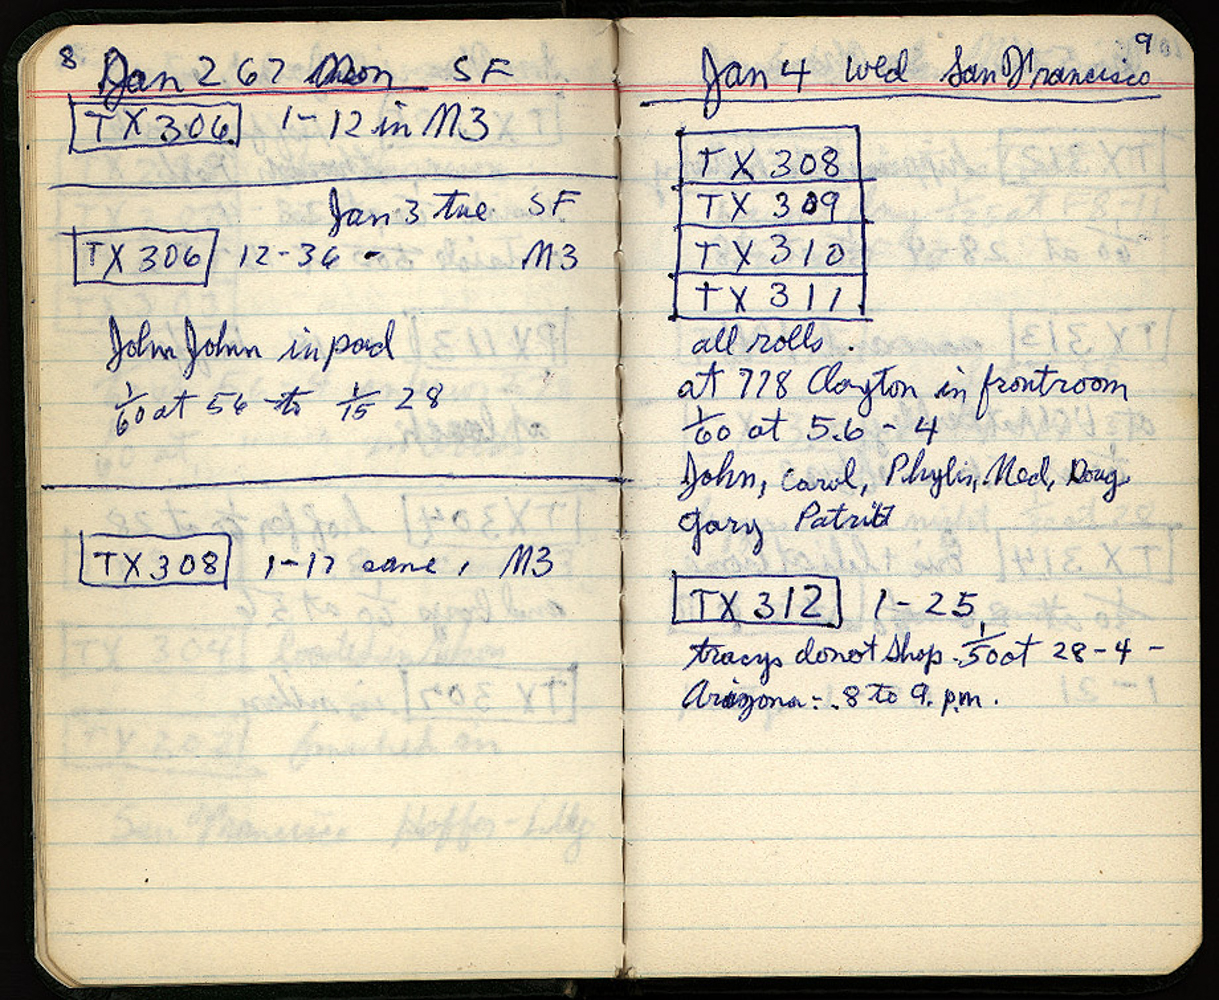 8
Jan 2 67 Mon SF
TX 306 1-12 in M3
Jan 3 tue SF
TX 306 12-36 - M3
John John in pad
1/60 at 56 to 1/15 28
TX 308 1-17 same, M3
9
Jan 4 wed San Francisco
TX 308
TX 309
TX 310
TX 311
all rolls.
at 778 Clayton in frontroom
1/60 at 5.6 - 4
John, Carol, Phylis, Ned, Doug
Gary
TX 312 1-25
tracys donot Shop. 1/50 at 28-4 -
Arizona - 8 to 9. p.m.